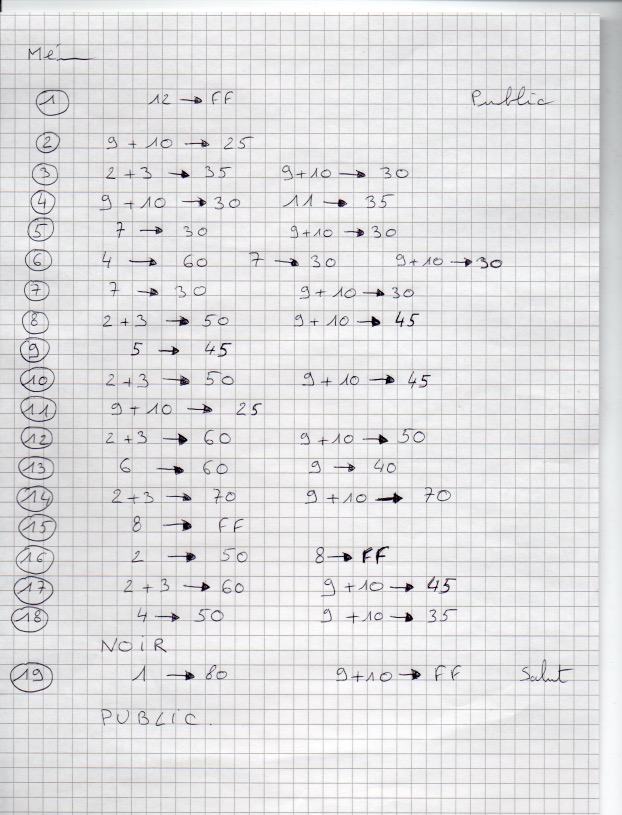 Mé
1 12 → FF Public
2 9 + 10 → 25
3 2 + 3 → 35 9 + 10 → 30
4 9 + 10 → 30 11 → 35
5 7 → 30 9 + 10 → 30
6 4 → 60 7 → 30 9 + 10 → 30
7 7 → 30 9 + 10 → 30
8 2 + 3 → 50 9 + 10 → 45
9 5 → 45
10 2 + 3 → 50 9 + 10 → 45
11 9 + 10 → 25
12 2 + 3 → 60 9 + 10 → 50
13 6 → 60 9 → 40
14 2 + 3 → 70 9 + 10 → 70
15 8 → FF
16 2 → 50 8 → FF
17 2 + 3 → 60 9 + 10 → 45
18 4 → 50 9 + 10 → 35
NOIR
19 1 → 80 9 + 10 → FF Salut
PUBLIC.